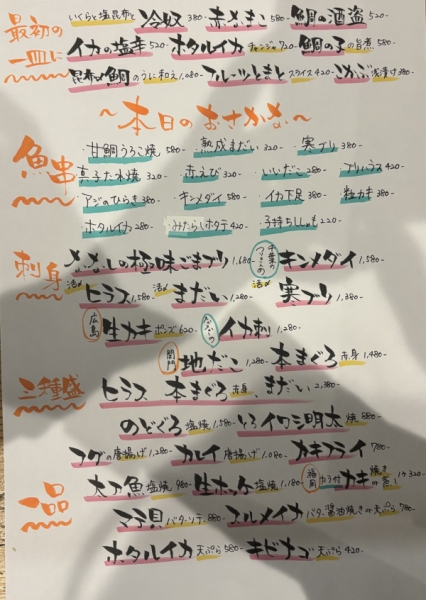 最初の一皿に
いくらと塩昆布と冷奴 380- 赤なまこ 580- 鯛の酒盗 520-
イカの塩辛 520- ホタルイカ チャンジャ 720- 鯛の子の旨煮 580-
昆布〆鯛のうに和え 1,080- フルーツとまと スライス 420- 浅漬け 380-
〜本日のおさかな〜
魚串
・甘鯛うろこ焼 580- ・熟成まだい 320- ・寒ブリ 380-
・真子たれ焼 320- ・赤えび 320- ・いいだこ 280- ・ブリハラス 420-
・アジのひらき 380- ・キンメダイ 580- ・イカ下足 380- ・粒カキ 380-
・ホタルイカ 280- ・みたらしホタテ 420- ・子持ちししゃも 220-
刺身
おかなしの極味ごまブリ 1,680- 千葉の キンメダイ 1,580-
活〆 ヒラス 1,580- 活〆 まだい 1,280- 活〆 寒ブリ 1,380-
広島 生カキ ポンズ 620- イカ刺 1,280-
関門 地だこ 1,280- 本まぐろ 赤身 1,480-
三種盛
ヒラス、本まぐろ 赤身、まだい 2,380-
一品
のどぐろ 塩焼 1,580- とろイワシ明太 焼 880-
フグの唐揚げ 1,280- カレイ 唐揚げ 1,080- カキフライ 780-
太刀魚 塩焼 980- 生ホッケ 塩焼 1,180- 福岡 カラ付カキ 焼き 蒸し 1ケ 320-
マテ貝 バターソテー 880- スルメイカ バター醤油焼き or 天ぷら 780-
ホタルイカ 天ぷら 580- キビナゴ 天ぷら 420-